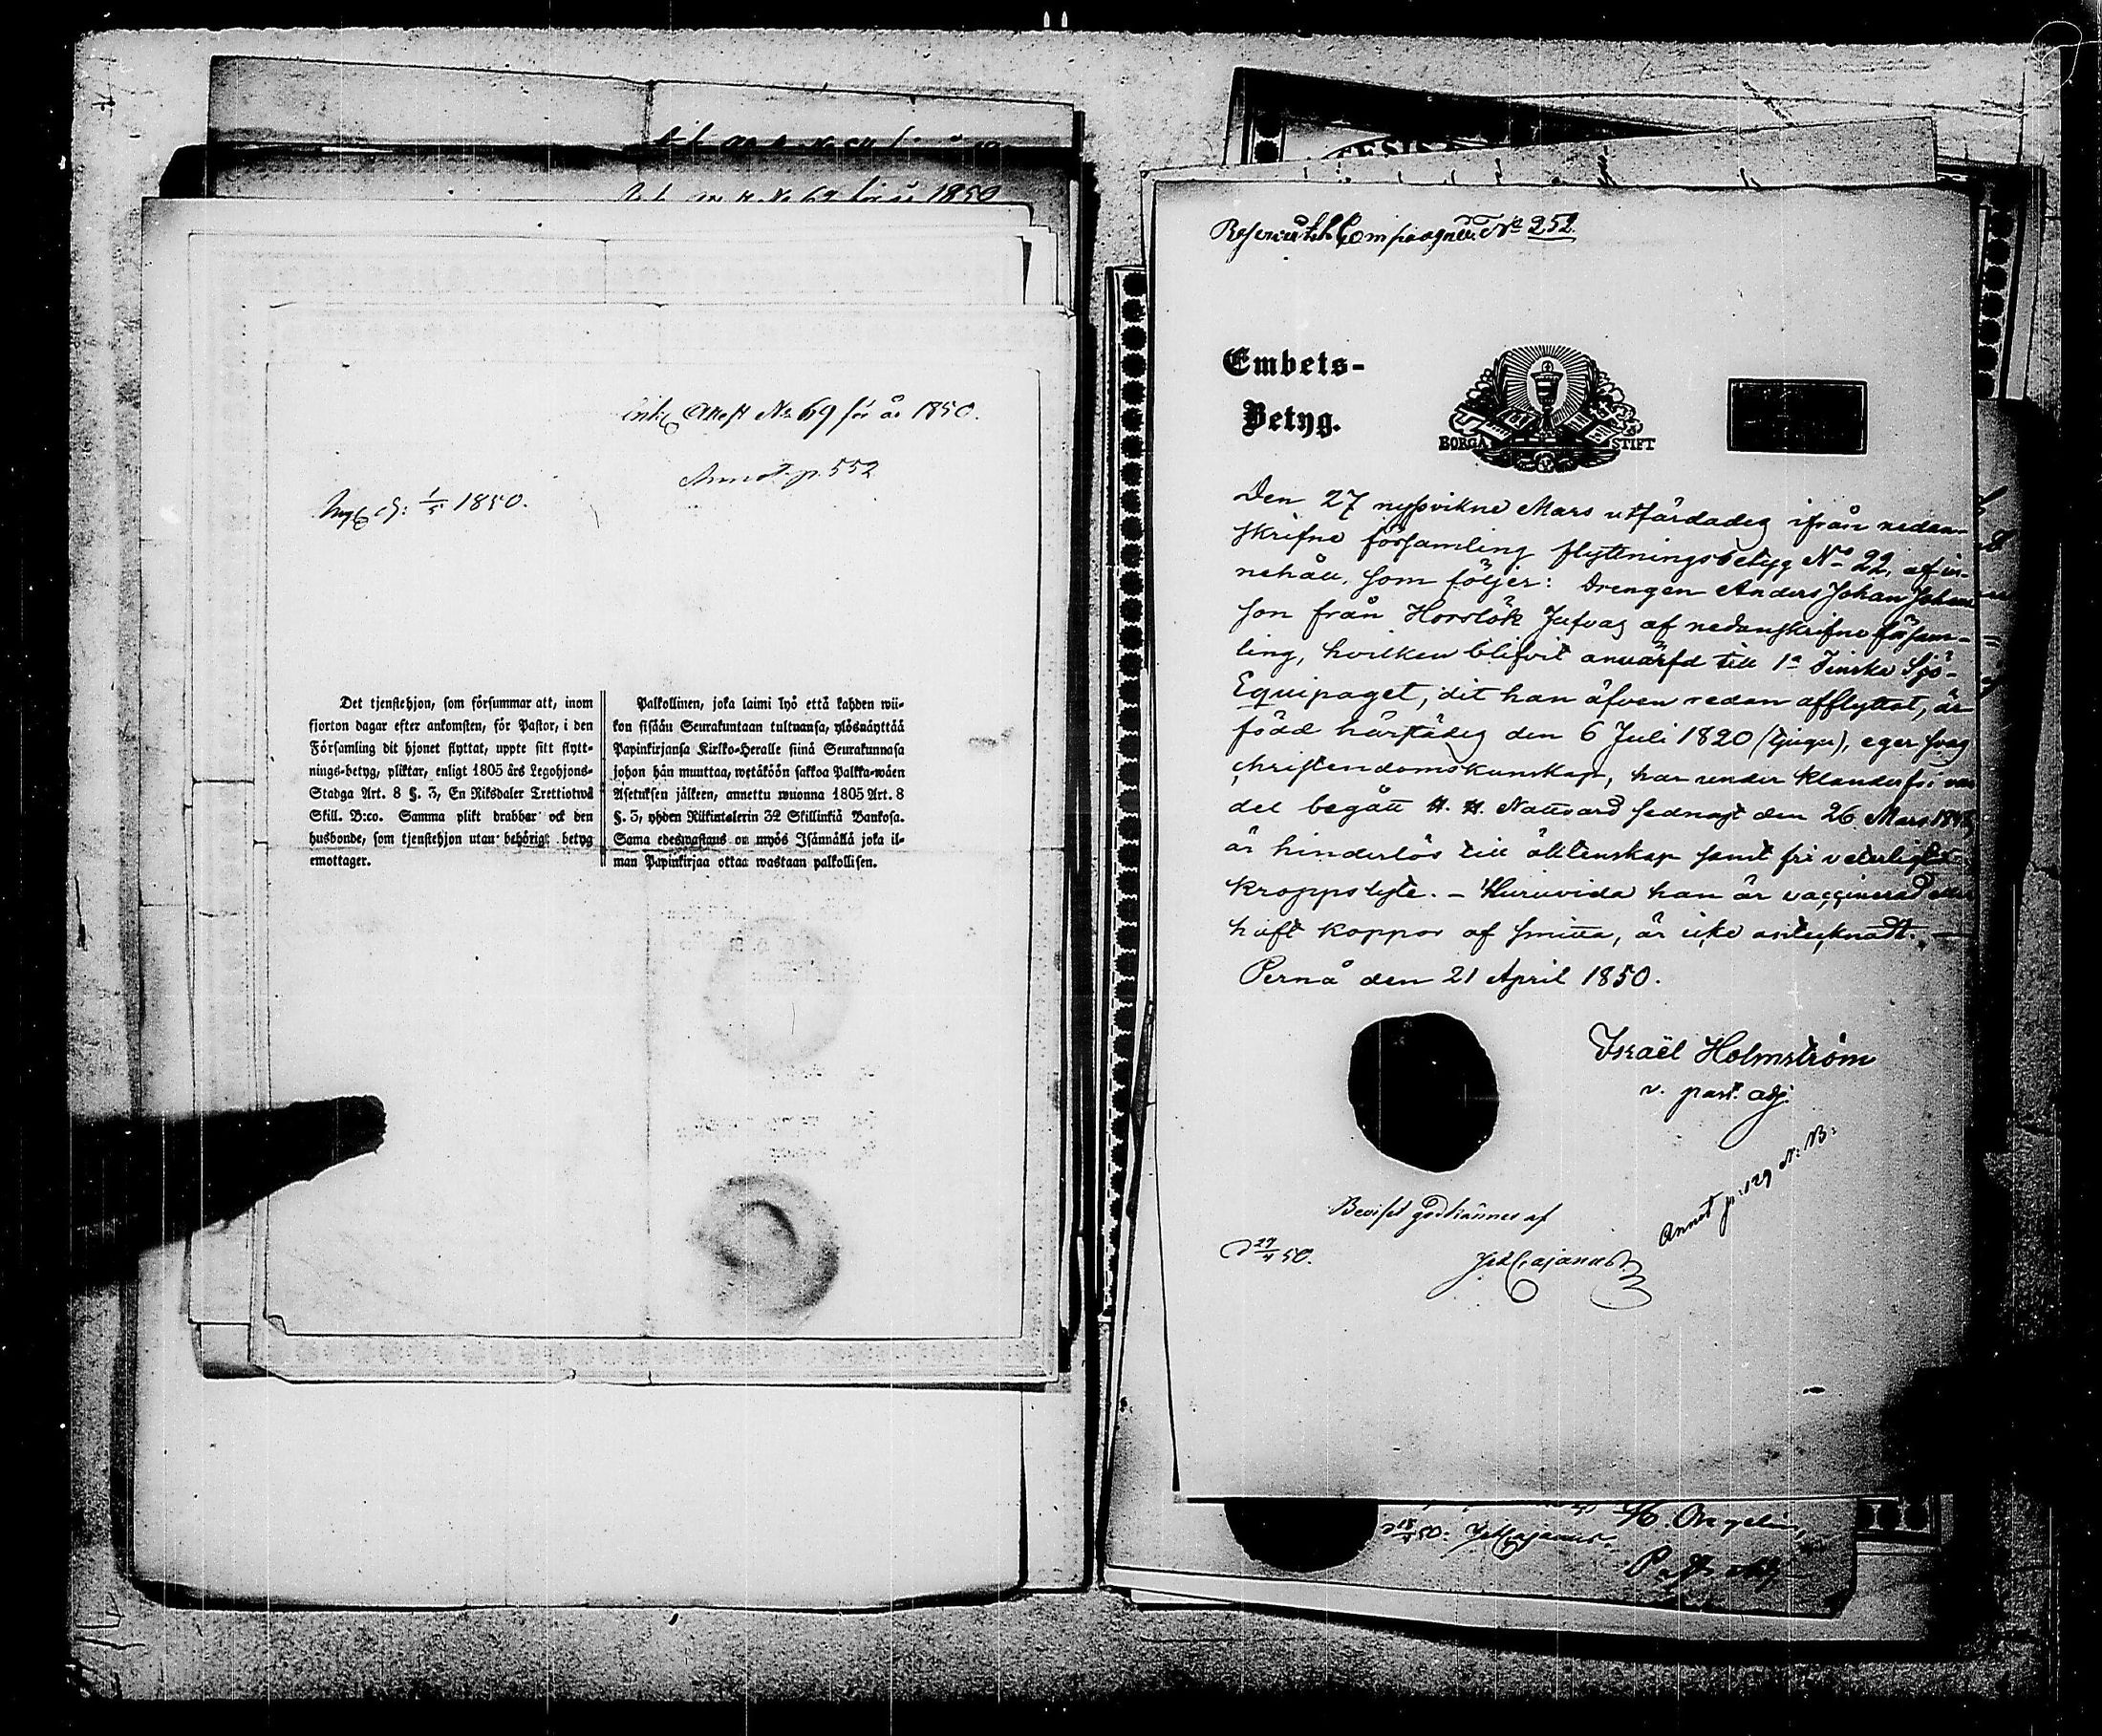 för år 1850
Ink. Attest No 69 för år 1850.
Annot. p. 552
1/5 1850.
Det tjenstehjon, som försummar att, inom
fjorton dagar efter ankomsten, för Pastor, i den
Församling dit hjonet flyttat, uppte sitt flytt-
nings-betyg, pliktar, enligt 1805 års Legohjons-
Stadga Art. 8 §. 3, En Riksdaler Trettiotwå
Skill. B:co. Samma plikt drabbar ock den
husbonde, som tjenstehjon utan behörigt betyg
emottager.
Palkollinen, joka laimi lyö että kahden wii-
kon sisään Seurakuntaan tultuansa, ylösnäyttää
Papinkirjansa Kirkko-Heralle siinä Seurakunnasa
johon hän muuttaa, wetäköön sakkoa Palkka-wäen
Asetuksen jälkeen, annettu wuonna 1805 Art. 8
§. 3, yhden Riikintalerin 32 Skillinkiä Bankosa.
Sama edeswastaus on myös Isännällä joka il-
man Papinkirjaa ottaa wastaan palkollisen.
Compagnie No 252
Embets-
Betyg.
BORGÅ STIFT
Den 27 nyssvikne Mars utfärdades ifrån nedan-
skrifne församling flyttningsbetyg No 22, af in-
nehåll, som följer: Drengen Anders Johan Johans
son från Horslök Jufvas af nedanskrifne försam-
ling, hvilken blifvit anvärfd till 1a Finska Sjö-
Equipaget, dit han äfven redan afflyttat, är
född härstädes den 6 Juli 1820 (tjugu), eger svag
christendomskunskap, har under klanderfri van
del begått H. H. Nattvard sednast den 26 Mars
är hinderlös till äktenskap samt fri
kroppslyte. – Huruvida han är vaccinerad eller
haft koppor af smitta, är icke antecknadt. –
Pernå den 21 April 1850.
Israël Holmström
v. past. adj.
Annot p: 129 N: B:
Beviset godkännes af
d 27/4 50.
Cajanus
Past. adj.